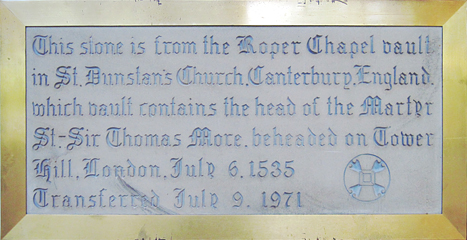 This stone is from the Roper Chapel vault
in St. Dunstan's Church, Canterbury, England,
which vault contains the head of the Martyr
St-Sir Thomas More, beheaded on Tower
Hill, London, July 6, 1535
Transferred July 9, 1971